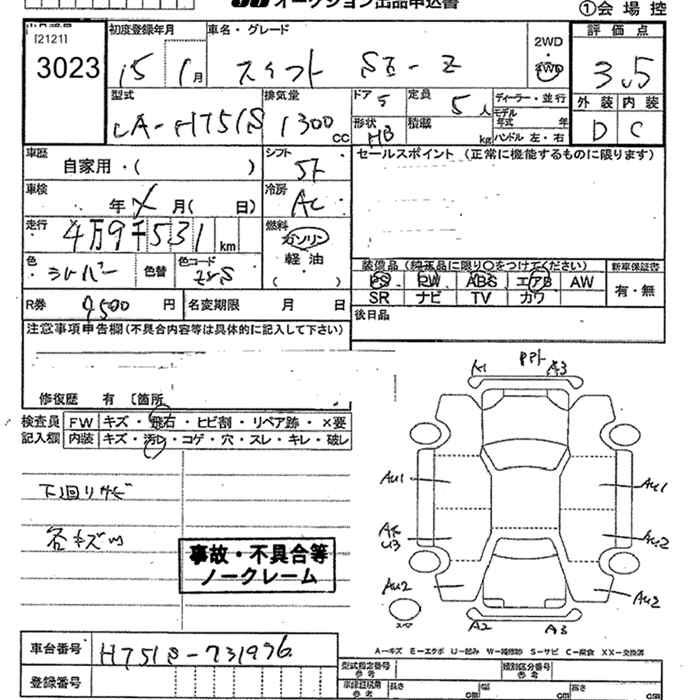 オークション出品申込書
①会場控
出品番号
[2121]
3023
初度登録年月
15 1月
車名・グレード
スイフト SE-Z
2WD
4WD
評価点
3.5
型式
LA-HT51S
排気量
1300 cc
ドア 5
定員 5人
ディーラー・並行
モデル年式 年
形状 HB
積載 kg
ハンドル 左・右
外装 内装
D C
車歴
自家用・( )
シフト
5F
セールスポイント (正常に機能するものに限ります)
車検
年 月( 日)
冷房
AC
走行
4万9千531km
燃料
ガソリン
軽油
( )
色
シルバー
色替
色コード
Z2S
装備品 (純正品に限り○をつけてください)
新車保証書
PS PW ABS エアB AW
SR ナビ TV カワ
有・無
R券 9500円
名変期限 月 日
後日品
注意事項申告欄(不具合内容等は具体的に記入して下さい)
修復歴 有 〔箇所
検査員
記入欄
FW キズ・飛石・ヒビ割・リペア跡・×要
内装 キズ・汚レ・コゲ・穴・スレ・キレ・破レ
下回りサビ
各キズ
事故・不具合等
ノークレーム
A1 PPト A3
AU1 AU1
U3 AU2
AU2 AU3
A2 A3
A-キズ E-エクボ U-凹み W-補修跡 S-サビ C-腐食 XX-交換済
車台番号 HT51S-731996
登録番号
型式指定番号
参考
類別区分番号
参考
車検証記載
参考
長さ cm
幅 cm
高さ cm